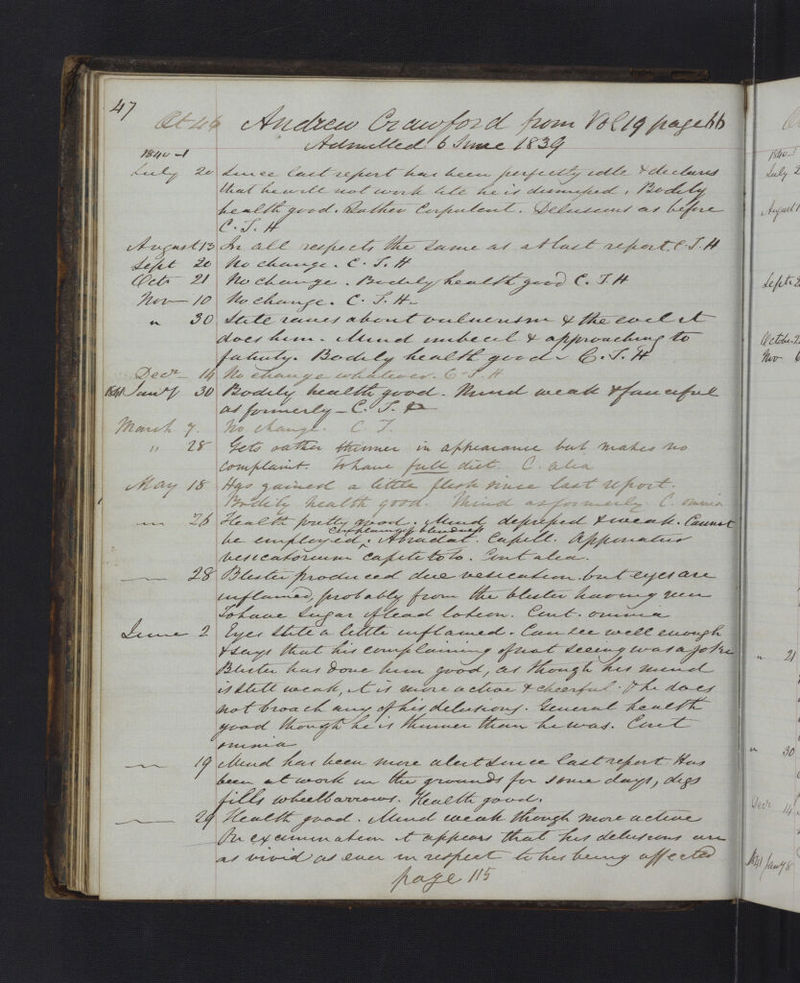 47
Æt 46 Andrew Crawford from Vol 19 page 66
Admitted 6 June 1839
1840-1
July 20 Since last report has been perfectly idle & declares
that he will not work till he is dismissed. Bodily
health good. Rather Corpulent. Delusions as before
C. T. H
August 13 In all respects the same as at last report. C. T. H
Sept 20 No change. C. T. H
Octr 21 No change. Bodily health good C. T. H
Nov 10 No change. C. T. H.
" 30 Still raves about vulnerism & the evil it
does him. Mind imbecil & approaching to
fatuity. Bodily health good. C. T. H
Decr 14 No change whatever. C. T. H
1841 Jany 30 Bodily health good. Mind weak & fanciful
as formerly C. T.
March 7. No change. C. T.
" 28 Gets rather thinner in appearance but makes no
complaint. To have full diet. C. alia
May 18 Has gained a little flesh since last report.
Bodily health good. Mind as formerly. C. omnia
" 26 Health pretty good. Mind depraved & weak. Cannot
complaining of blindness
be employed. Abradat. Capill. Apponatur
vesicatorium capite toto. Cont alia.
28 Blister produced due vesication but eyes are
inflamed, probably from the blister having run
To have Sugar of lead lotion. Cont. omnia
June 2 Eyes still a little inflamed. Can see well enough
& says that his complaining of not seeing was a joke
Blister has done him good, as though his mind
is still weak, it is more active & cheerful & he does
not broach any of his delusions. General health
good though he is thinner than he was. Cont
omnia
19 Mind has been more alert since last report. Has
been at work in the grounds for some days, digs
fills wheelbarrows. Health good.
29 Health good. Mind weak though more active
On examination it appears that his delusions are
as vivid as ever in respect to his being affected
page 115
1840-1
July 2
August 1
Septr 2
October 2
Nov 6
" 21
" 30
Decr 14
1841 Jany 8